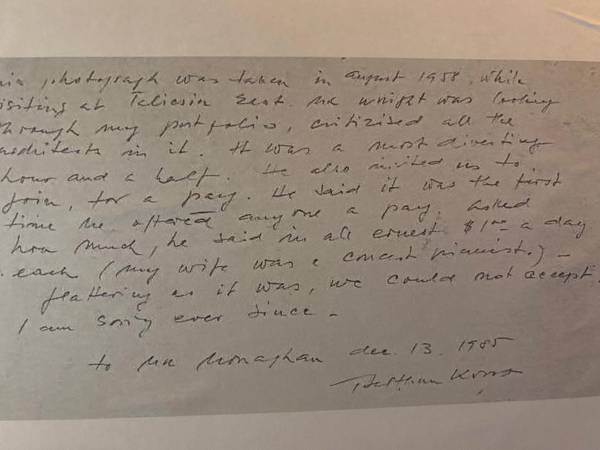 his photograph was taken in august 1958, while
isiting at Taliesin East. Mr Wright was looking
through my portfolio, critizised all the
architects in it. It was a most diverting
hour and a half. He also invited us to
join, for a pay. He said it was the first
time he offered anyone a pay, asked
how much, he said in all ernest $1.00 a day
each (my wife was a concert pianist.) –
flattering as it was, we could not accept.
I am sorry ever since –
to Mr Monaghan dec. 13. 1985
Balthazar Korab